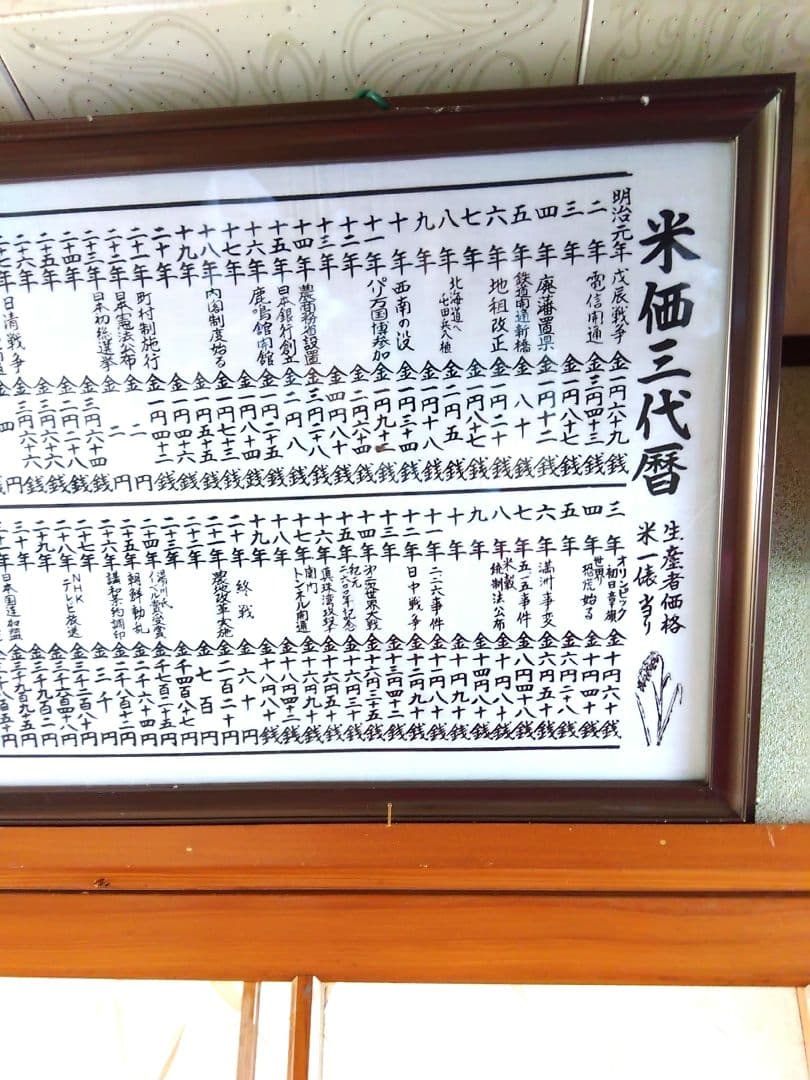 米価三代暦
生産者価格
米一俵当り
明治元年 戊辰戦争 金一円六十九銭
二年 電信開通 金三円四十三銭
三年 金一円八十七銭
四年 廃藩置県 金一円十二銭
五年 鉄道開通新橋 金八十銭
六年 地租改正 金一円二十銭
七年 金一円八十七銭
八年 北海道へ屯田兵入植 金二円五銭
九年 金一円十八銭
十年 西南の役 金一円三十四銭
十一年 パリ万国博参加 金一円九十二銭
十二年 金二円六十四銭
十三年 金四円十八銭
十四年 農商務省設置 金三円二十八銭
十五年 日本銀行創立 金二円八銭
十六年 鹿鳴館開館 金一円二十五銭
十七年 金一円八十四銭
十八年 内閣制度始る 金一円七十三銭
十九年 金一円五十五銭
二十年 金一円四十六銭
二十一年 町村制施行 金一円四十二銭
二十二年 日本憲法公布 金二円
二十三年 日本初総選挙 金二円
二十四年 金三円六十四銭
二十五年 金二円二十八銭
二十六年 金二円六十六銭
二十七年 日清戦争 金三円八十六銭
三年 オリンピック初日章旗 金十円六十銭
四年 世界恐慌始る 金十円四十銭
五年 金六円二十八銭
六年 満洲事変 金六円五十銭
七年 五一五事件 金八円四十八銭
八年 米穀統制法公布 金十円八十銭
九年 金十四円八十銭
十年 金十円九十銭
十一年 二二六事件 金十一円十銭
十二年 日中戦争 金十二円九十銭
十三年 金十三円四十二銭
十四年 第二世界大戦 金十六円三十五銭
十五年 紀元二六〇〇年記念 金十六円三十銭
十六年 真珠湾攻撃 金十六円五十銭
十七年 関門トンネル開通 金十六円九十銭
十八年 金十八円四十二銭
十九年 金十八円八十銭
二十年 終戦 金六十円
二十一年 農地改革実施 金二百二十円
二十二年 金七百円
二十三年 金千四百八七円
二十四年 湯川氏ノーベル賞受賞 金千七百二十五円
二十五年 朝鮮動乱 金二千六十四円
二十六年 講和条約調印 金二千八百十二円
二十七年 金三千円
二十八年 NHKテレビ放送 金三千二百八十円
二十九年 金三千六百四十八円
三十年 金三千九百二円
日本国連加盟 金三千九百九十五円